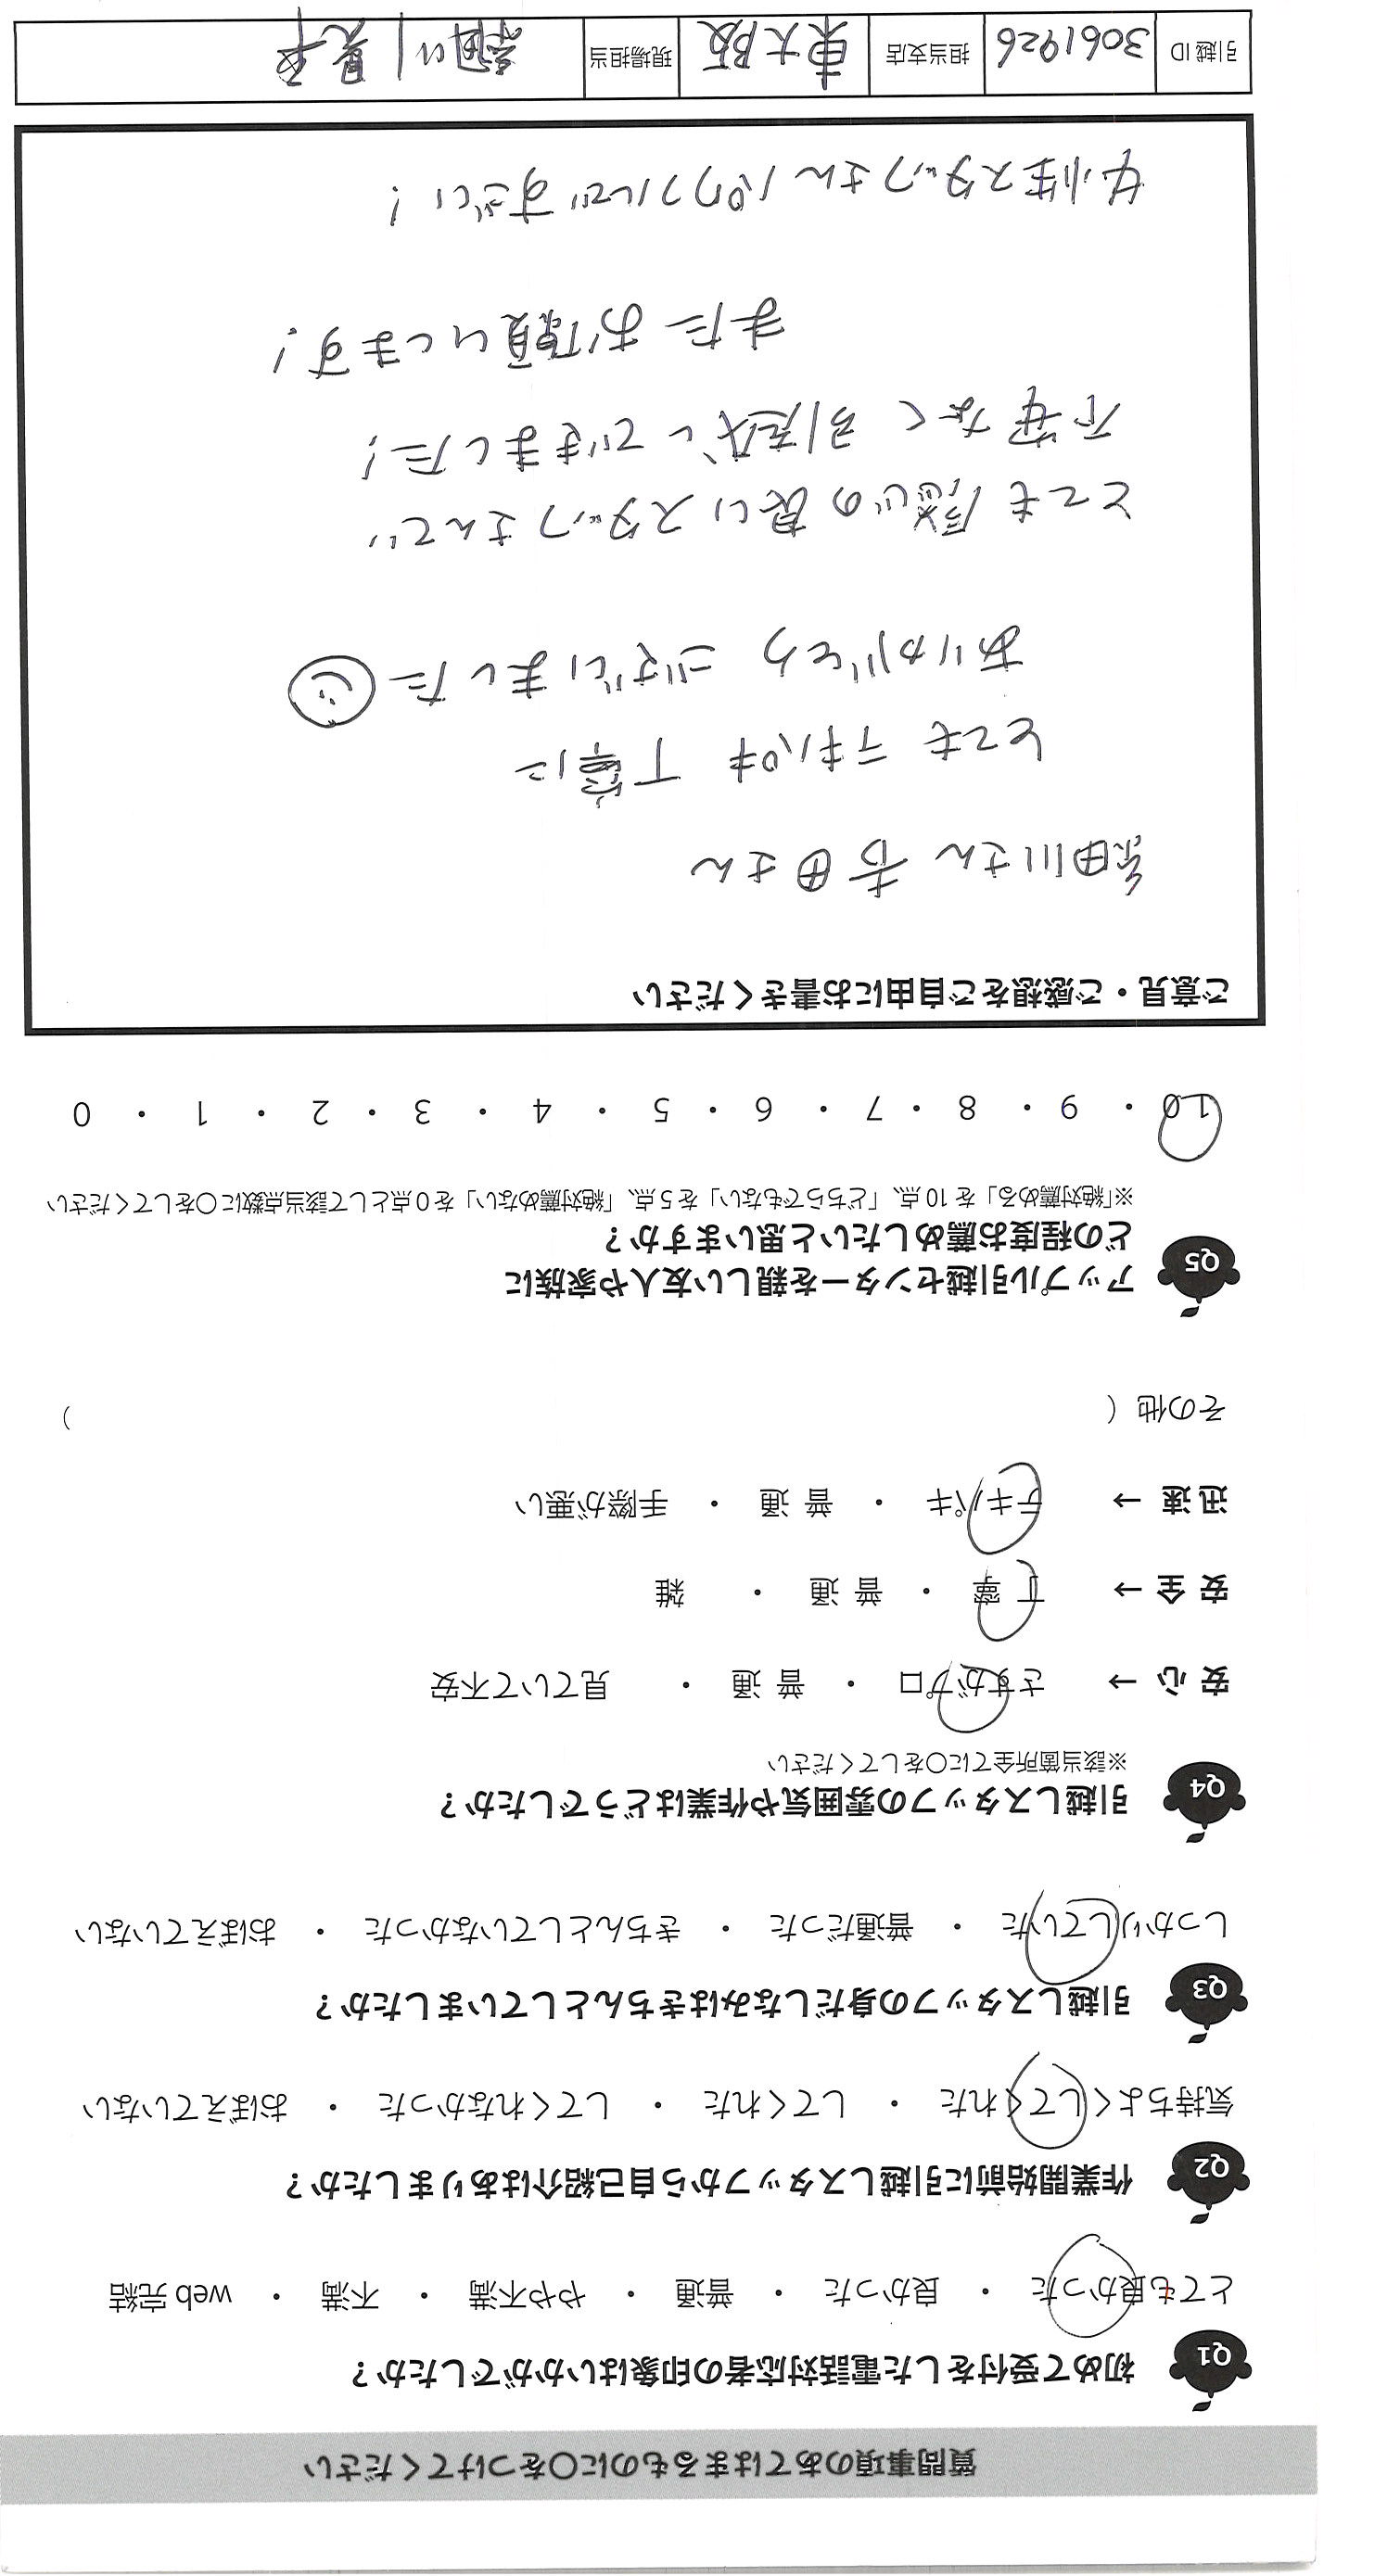 質問事項のあてはまるものに〇をつけてください
Q1 初めて受付をした電話対応者の印象はいかがでしたか？
とても良かった ・ 良かった ・ 普通 ・ やや不満 ・ 不満 ・ web 完結
Q2 作業開始前に引越しスタッフから自己紹介はありましたか？
気持ちよくしてくれた ・ してくれた ・ してくれなかった ・ おぼえていない
Q3 引越しスタッフの身だしなみはきちんとしていましたか？
しっかりしていた ・ 普通だった ・ きちんとしていなかった ・ おぼえていない
Q4 引越しスタッフの雰囲気や作業はどうでしたか？
※該当箇所全てに〇をしてください
安心 → さすがプロ ・ 普通 ・ 見ていて不安
安全 → 丁寧 ・ 普通 ・ 雑
迅速 → テキパキ ・ 普通 ・ 手際が悪い
その他（ ）
Q5 アップル引越センターを親しい友人や家族に
どの程度お薦めしたいと思いますか？
※「絶対薦める」を 10 点、「どちらでもない」を 5 点、「絶対薦めない」を 0 点として該当点数に〇をしてください
10 ・ 9 ・ 8 ・ 7 ・ 6 ・ 5 ・ 4 ・ 3 ・ 2 ・ 1 ・ 0
ご意見・ご感想をご自由にお書きください
細川さん 吉田さん
とても テキパキ 丁寧に
ありがとう ございました
とても 感じの良いスタッフさんで
不安なく 引越し できました！
また お願いします！
女性スタッフさん パワフルで すごい！
引越 ID 3061926 担当支店 東大阪 現場担当 細川